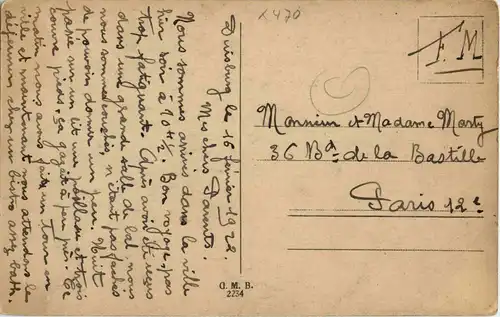 Duisburg le 16 février 1922
Mes chers Parents.
Nous sommes arrivés dans la ville
hier soir à 10 H ½. Bon voyage, pas
trop fatiguant. Après avoir été reçus
dans une grande salle de bal, nous
nous sommes couchés, n'étant pas fachés
de pouvoir dormir un peu. Nuit
passée sur un lit une paillasse et trois
couvre pieds. ça gazait à peu près. Ce
matin nous avons fait un tour en
ville et maintenant nous attendons le
déjeuner chez un bistro assez bath.
x470
F. M
Monsieur et Madame Marty
36 Bd de la Bastille
Paris 12e
G. M. B.
2234